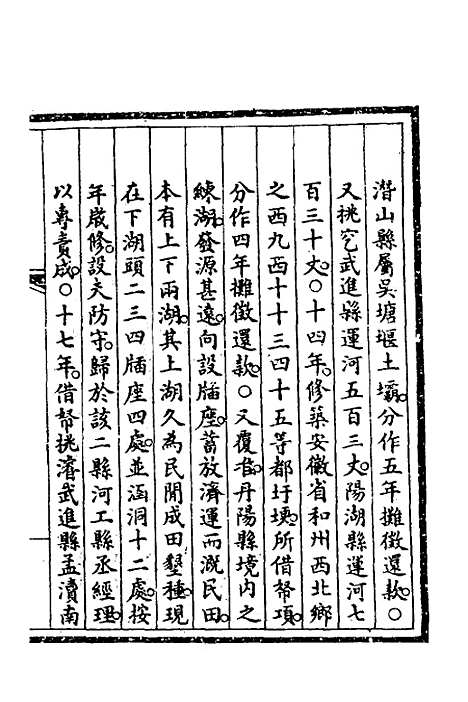 潛山縣屬吳塘堰土壩。分作五年攤徵還款。○
又挑空武進縣運河五百三丈。陽湖縣運河七
百三十丈。○十四年。修築安徽省和州西北鄉
之西九西十十三四十五等都圩埂。所借帑項。
分作四年攤徵還款。○又覆准。丹陽縣境內之
練湖。發源甚遠。向設牐座。蓄放濟運而溉民田。
本有上下兩湖。其上湖久為民閒成田墾種。現
在下湖頭二三四牐座四處。並涵洞十二處。按
年歲修。設夫防守。歸於該二縣河工縣丞經理。
以專責成。○十七年。借帑挑濬武進縣孟瀆南